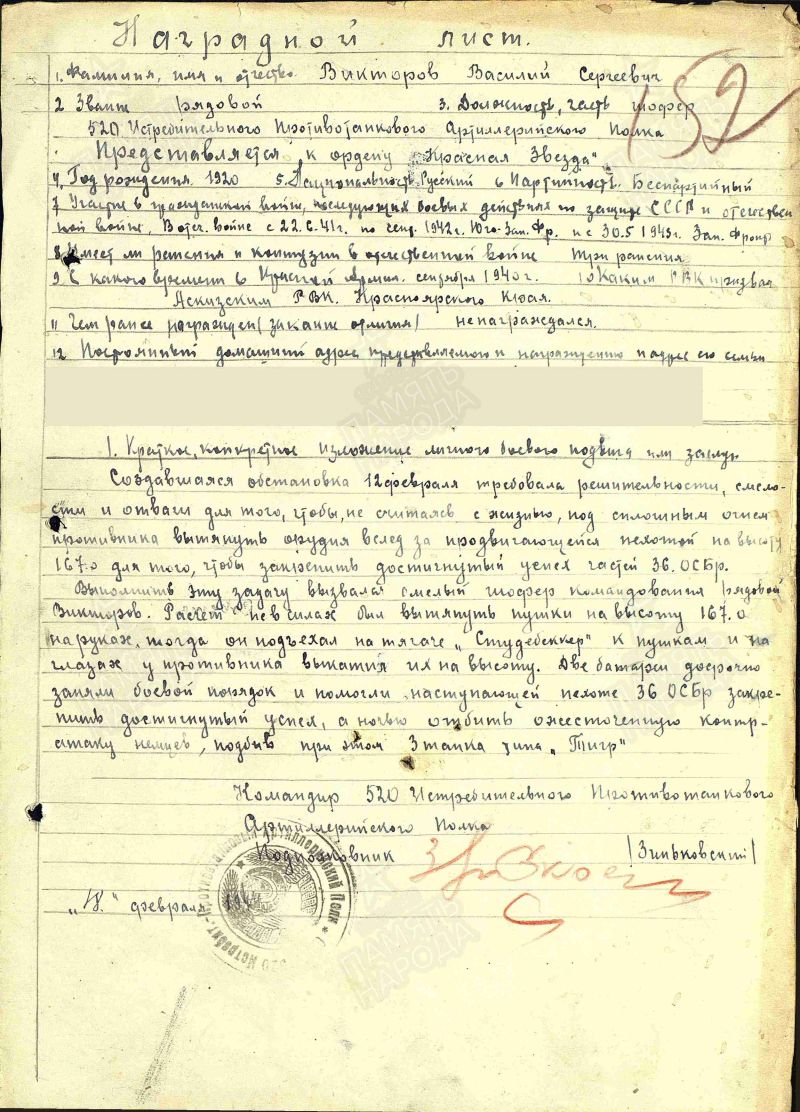 Наградной лист.
152
1. Фамилия, имя и отчество Викторов Василий Сергеевич
2 Звание рядовой 3. Должность, часть шофер
520 Истребительного Противотанкового Артиллерийского Полка
Представляется к ордену „Красная Звезда"
4. Год рождения 1920 5. Национальность Русский 6 Партийность. Беспартийный
7 Участие в гражданской войне, последующих боевых действиях по защите СССР и отечествен
ной войне, В отеч. войне с 22.6.41г. по сент. 1942г. Юго-Зап. Фр. и с 30.5 1943г. Зап. Фронт
8 Имеет ли ранения и контузии в отечественной войне три ранения
9 С какого времени в Красной Армии. сентября 1940г. 10 Каким РВК призван
Аскизским РВК. Красноярского Края.
11 Чем ранее награжден (за какие отличия) ненаграждался.
12 Постоянный домашний адрес представляемого к награждению и адрес его семьи
1. Краткое, конкретное изложение личного боевого подвига или заслуг
Создавшаяся обстановка 12 февраля требовала решительности, смело-
сти и отваги для того, чтобы, не считаясь с жизнью, под сплошным огнем
противника вытянуть орудия вслед за продвигающейся пехотой на высоту
167.0 для того, чтобы закрепить достигнутый успех частей 36. ОСБр.
Выполнить эту задачу вызвался смелый шофер командования рядовой
Викторов. Расчет не в силах был вытянуть пушки на высоту 167.0
на руках, тогда он подъехал на тягаче „Студебеккер" к пушкам и на
глазах у противника выкатил их на высоту. Две батареи досрочно
заняли боевой порядок и помогли наступающей пехоте 36 ОСБр закре-
пить достигнутый успех, а ночью отбить ожесточенную контр-
атаку немцев, подбив при этом 3 танка типа „Тигр"
Командир 520 Истребительного Противотанкового
Артиллерийского Полка
Подполковник /Зиньковский/
„18." февраля 194
520 Истребит.-Противотанковый Артиллерийский Полк
ПАМЯТЬ НАРОДА
ПАМЯТЬ НАРОДА